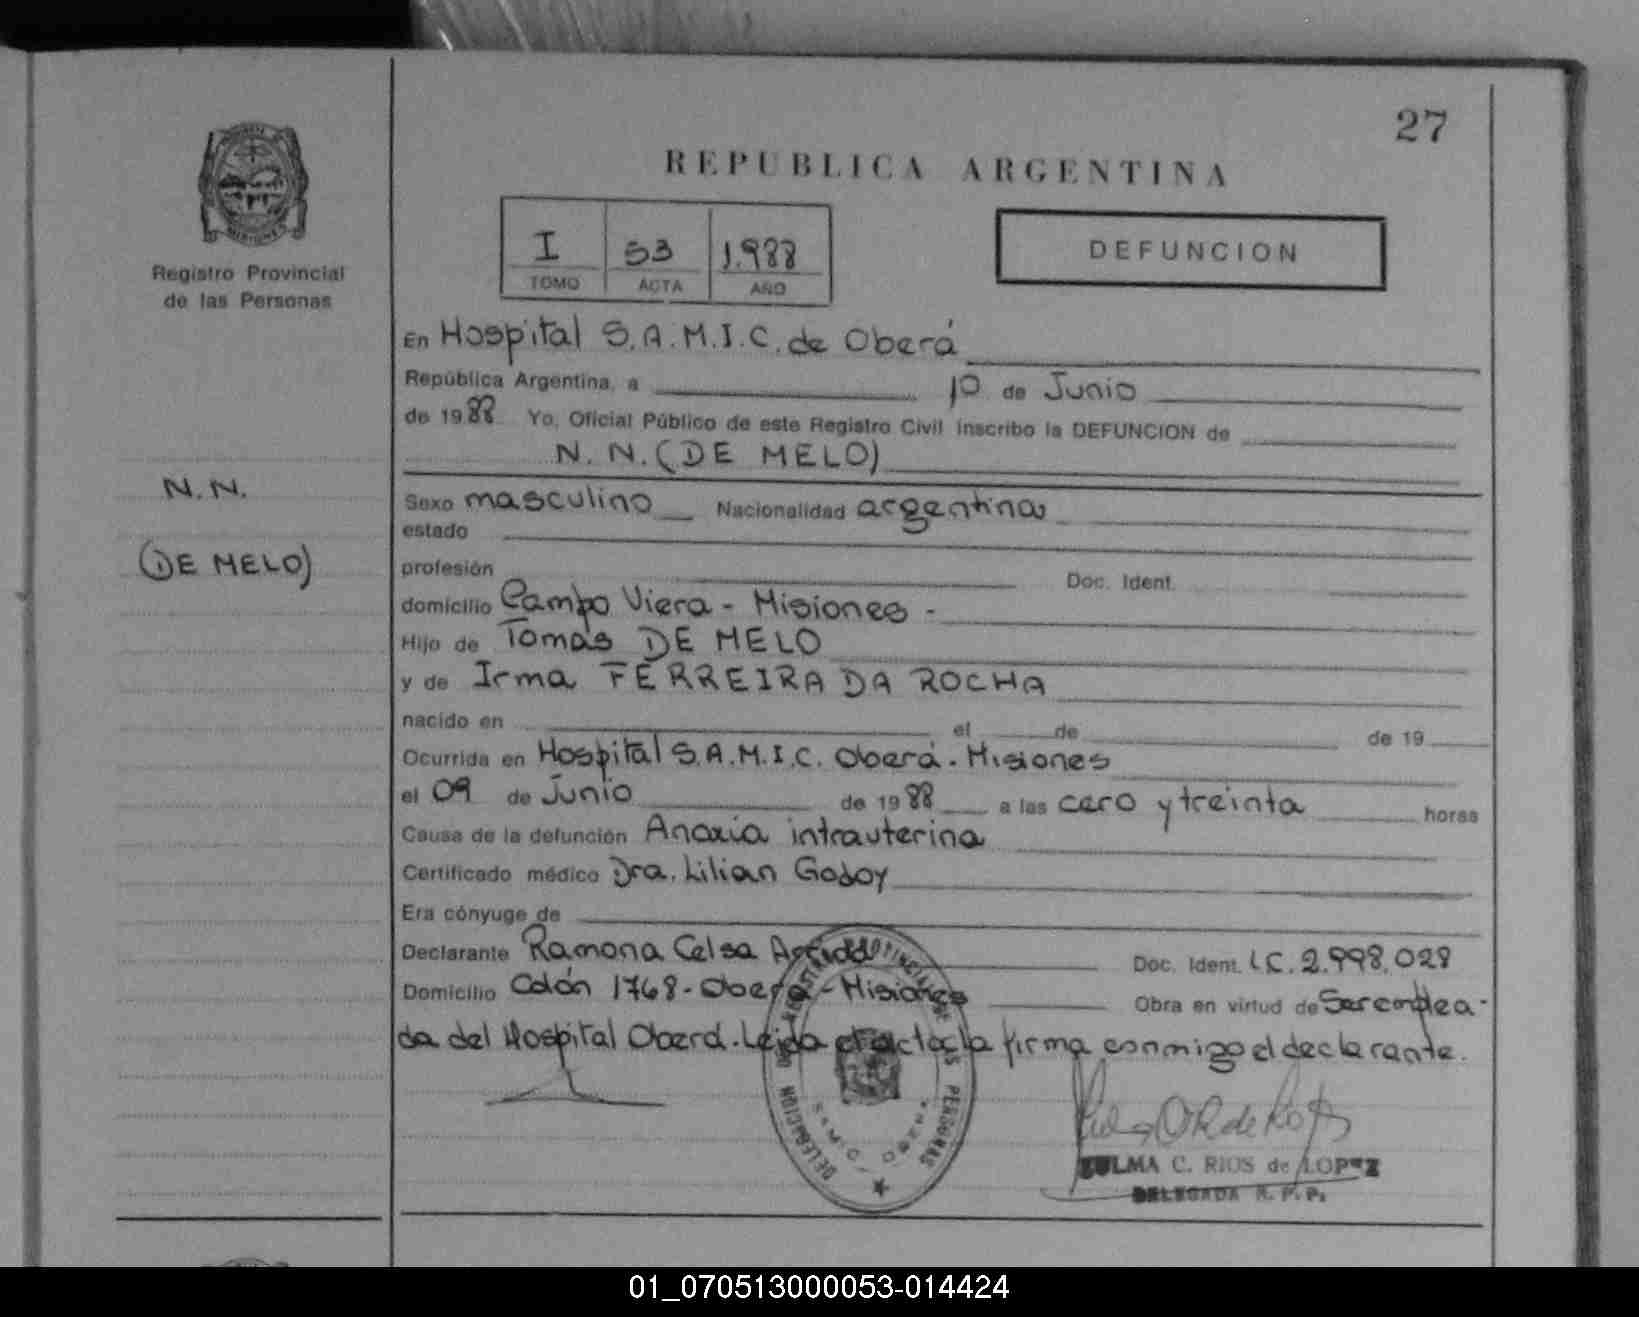 27
REPUBLICA ARGENTINA
MISIONES
Registro Provincial
de las Personas
I 53 1.988
TOMO ACTA AÑO
DEFUNCION
En Hospital S.A.M.I.C. de Oberá
República Argentina, a 10 de Junio
de 1988 Yo, Oficial Público de este Registro Civil inscribo la DEFUNCION de
N. N. (DE MELO)
N.N.
(DE MELO)
Sexo masculino Nacionalidad argentina
estado
profesión Doc. Ident.
domicilio Campo Viera - Misiones -
Hijo de Tomás DE MELO
y de Irma FERREIRA DA ROCHA
nacido en el de de 19
Ocurrida en Hospital S.A.M.I.C. Oberá. Misiones
el 09 de Junio de 1988 a las cero y treinta horas
Causa de la defunción Anoxia intrauterina
Certificado médico Dra. Lilian Godoy
Era cónyuge de
Declarante Ramona Celsa Doc. Ident. L.C. 2.998.028
Domicilio Colón 1768 - Oberá - Misiones Obra en virtud de Ser emplea-
da del Hospital Oberá. Leida el acta la firma conmigo el declarante.
DELEGACION DEL REGISTRO PROVINCIAL DE LAS PERSONAS
SAMIC OBERA
ZULMA C. RIOS de LOPEZ
DELEGADA R. P. P.
01_070513000053-014424